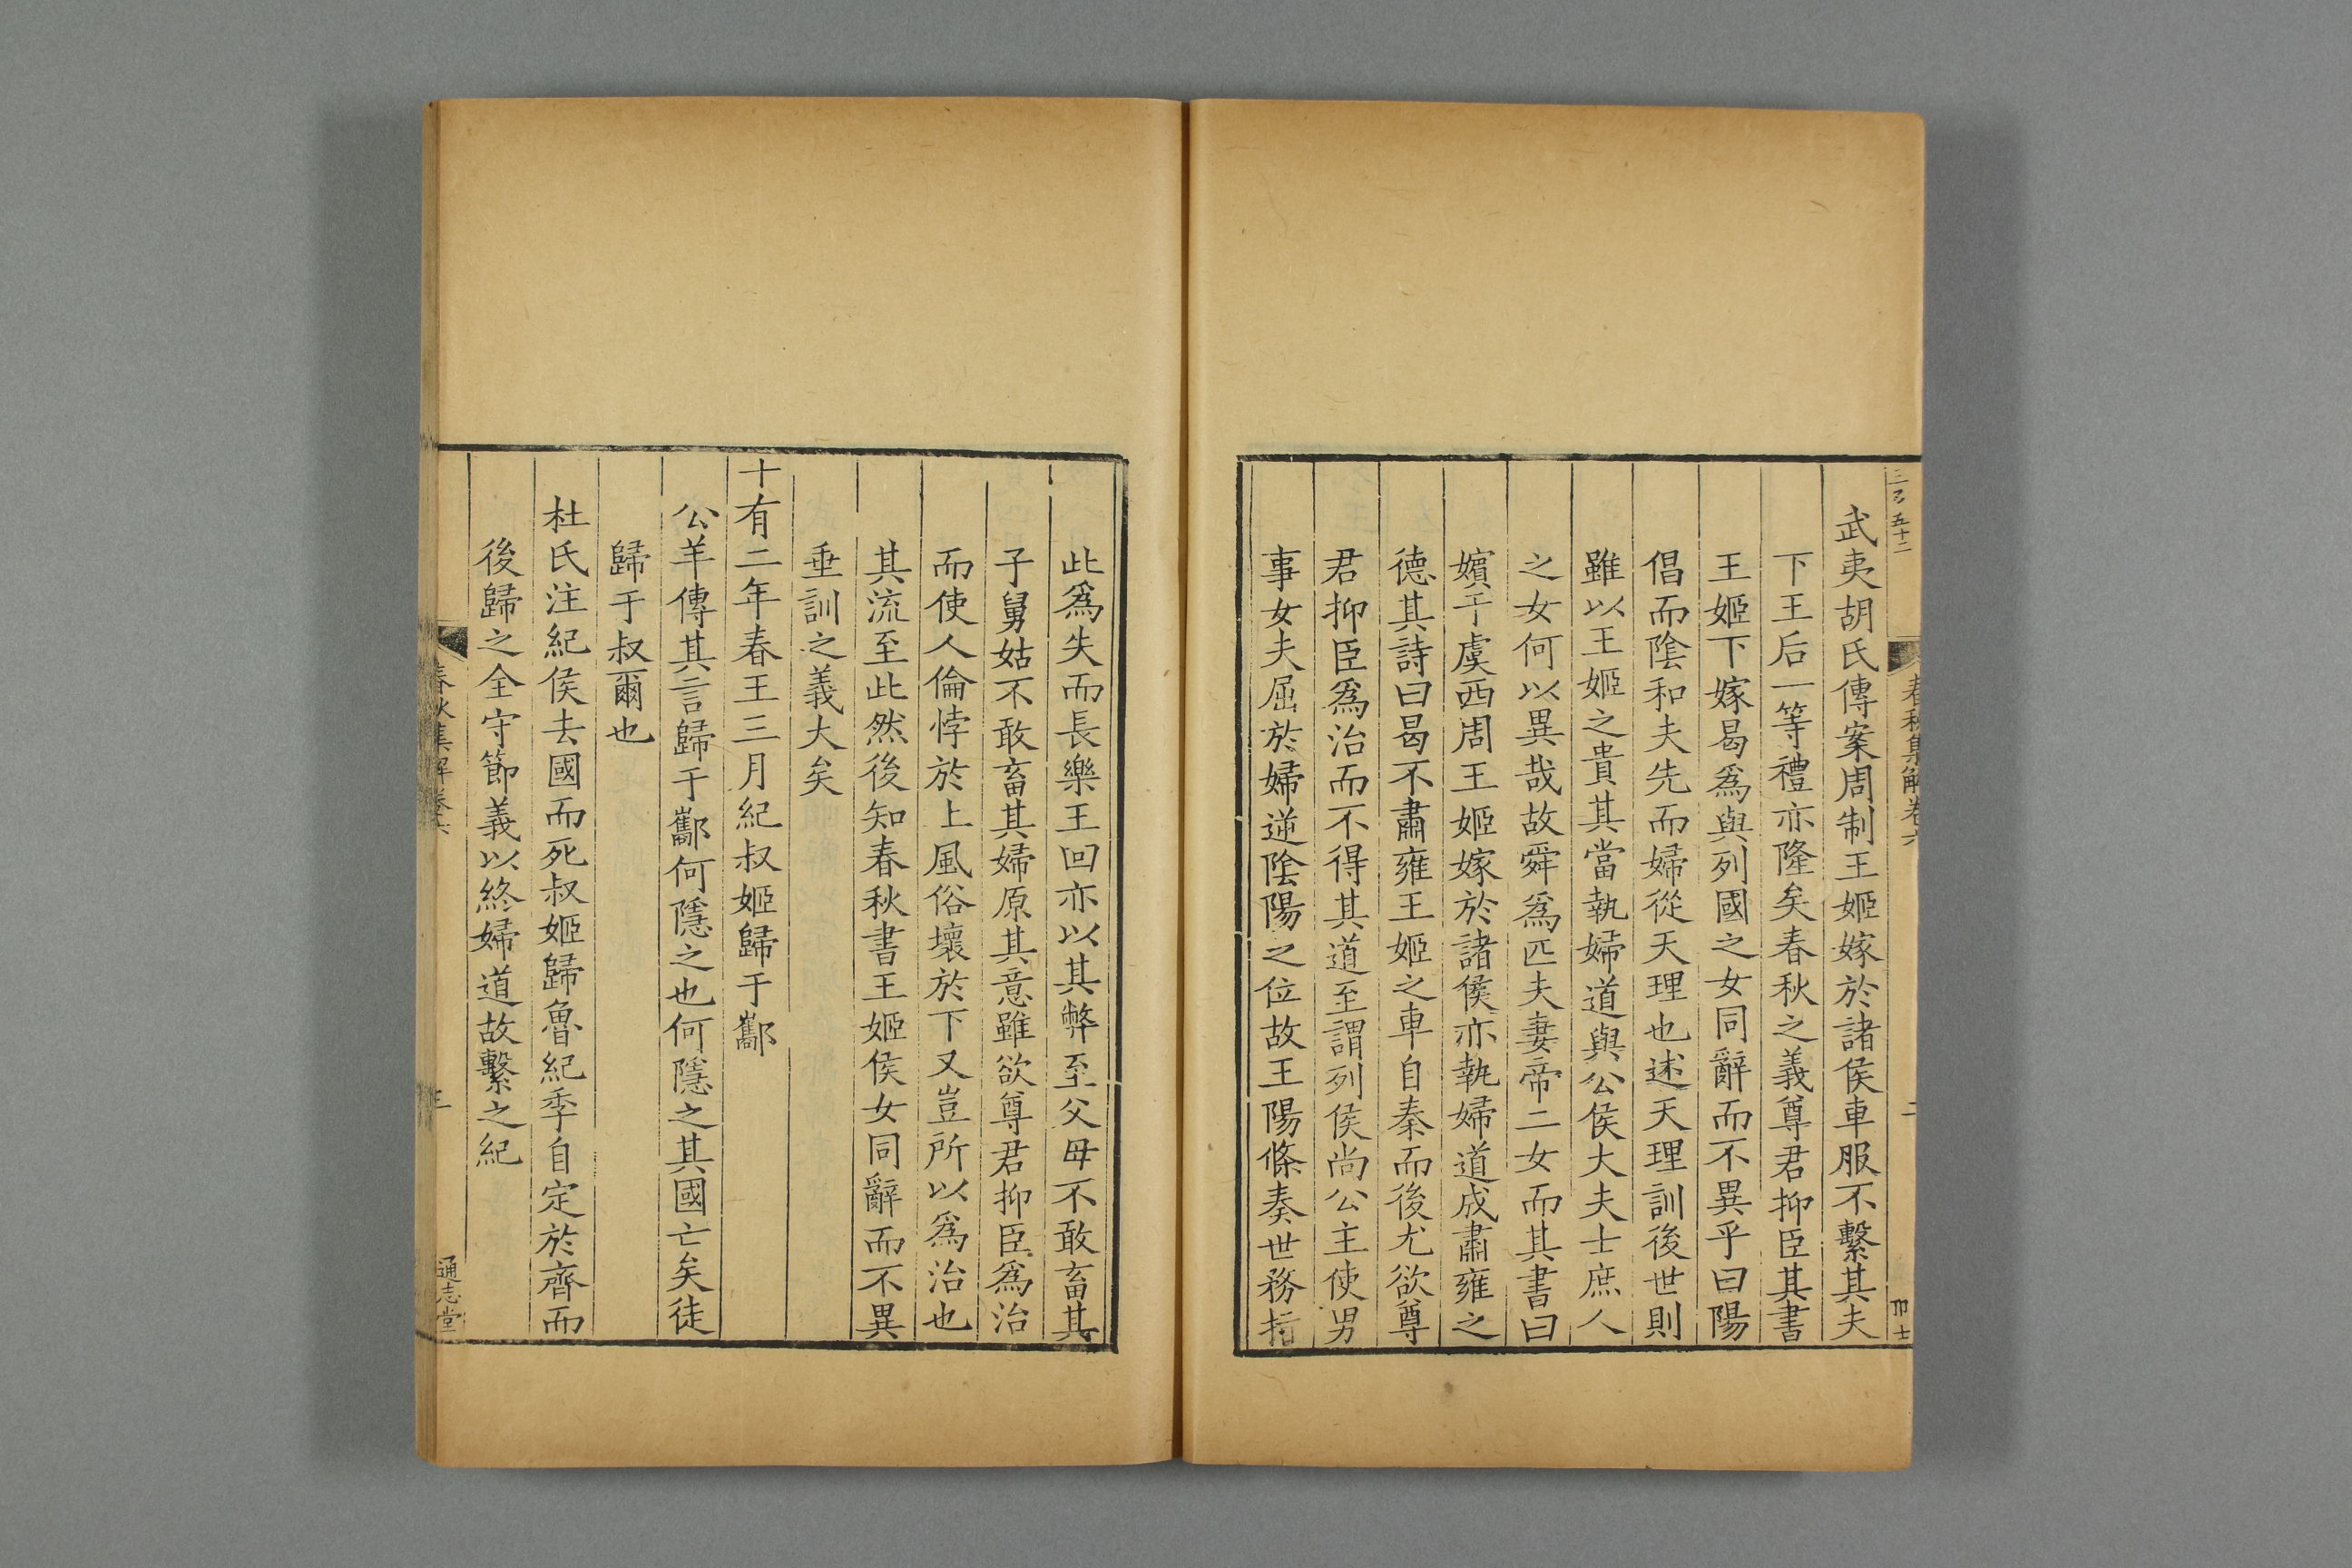 春秋集解卷六
二
武夷胡氏傳案周制王姬嫁於諸侯車服不繫其夫
下王后一等禮亦隆矣春秋之義尊君抑臣其書
王姬下嫁曷爲與列國之女同辭而不異乎曰陽
倡而陰和夫先而婦從天理也述天理訓後世則
雖以王姬之貴其當執婦道與公侯大夫士庶人
之女何以異哉故舜爲匹夫妻帝二女而其書曰
嬪于虞西周王姬嫁於諸侯亦執婦道成肅雍之
德其詩曰曷不肅雍王姬之車自秦而後尤欲尊
君抑臣爲治而不得其道至謂列侯尚公主使男
事女夫屈於婦逆陰陽之位故王陽條奏世務指
此爲失而長樂王回亦以其弊至父母不敢畜其
子舅姑不敢畜其婦原其意雖欲尊君抑臣爲治
而使人倫悖於上風俗壞於下又豈所以爲治也
其流至此然後知春秋書王姬侯女同辭而不異
垂訓之義大矣
十有二年春王三月紀叔姬歸于酅
公羊傳其言歸于酅何隱之也何隱之其國亡矣徒
歸于叔爾也
杜氏注紀侯去國而死叔姬歸魯紀季自定於齊而
後歸之全守節義以終婦道故繫之紀
春秋集解卷六
三
通志堂